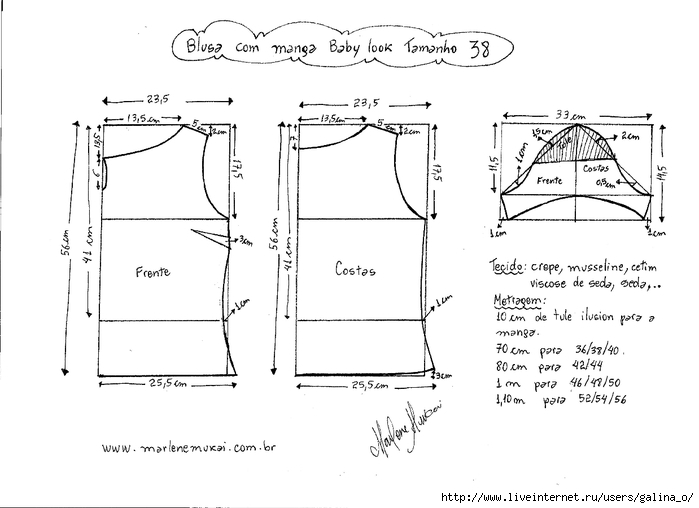 Blusa com manga Baby look Tamanho 38
23,5
13,5 cm
5 cm
2cm
13,5
5
17,5
56 cm
41 cm
3cm
Frente
1cm
25,5 cm
23,5
13,5cm
5 cm
2cm
7
17,5
56 cm
41 cm
Costas
1cm
25,5 cm
3cm
33 cm
1,5cm
Tule
2cm
11,5
1cm
Frente
Costas
0,5cm
14,5
1cm
1cm
Tecido: crepe, musseline, cetim
viscose de seda, seda,..
Metragem:
10 cm de tule ilusion para a
manga.
70 cm para 36/38/40.
80 cm para 42/44
1 m para 46/48/50
1,10m para 52/54/56
Marlene Mukai
www.marlenemukai.com.br
http://www.liveinternet.ru/users/galina_o/